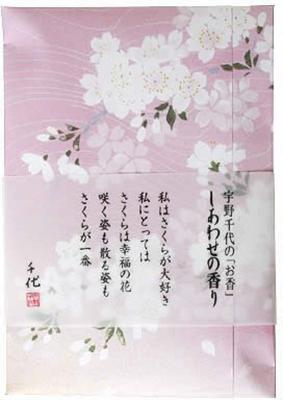 宇野千代の「お香」
しあわせの香り
私はさくらが大好き
私にとっては
さくらは幸福の花
咲く姿も散る姿も
さくらが一番
千代